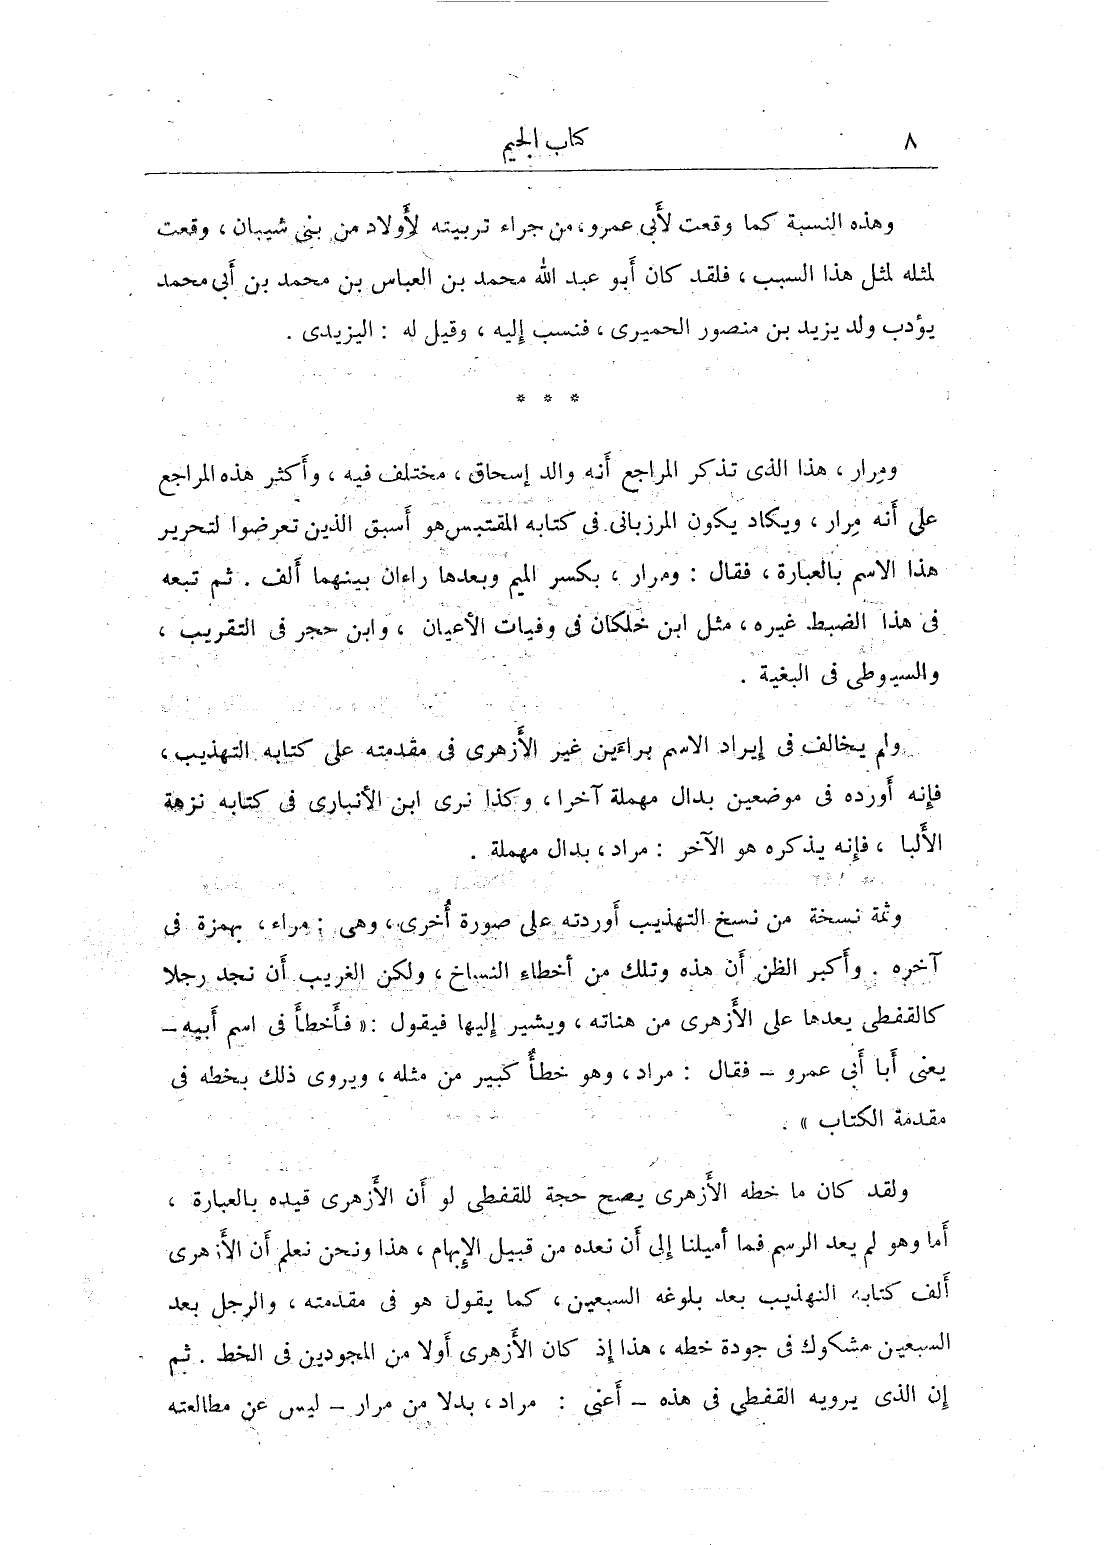 ٨
كتاب الجيم
وهذه النسبة كما وقعت لأَبى عمرو، من جراء تربيته لأَولاد من بنى شيبان ، وقعت
لمثله لمثل هذا السبب ، فلقد كان أَبو عبد الله محمد بن العباس بن محمد بن أَبى محمد
يؤدب ولد يزيد بن منصور الحميرى ، فنسب إليه ، وقيل له : اليزيدى .
* * *
ومِرار ، هذا الذى تذكر المراجع أَنه والد إسحاق ، مختلف فيه ، وأَكثر هذه المراجع
على أَنه مِرار ، ويكاد يكون المرزبانى فى كتابه المقتبس هو أَسبق الذين تعرضوا لتحرير
هذا الاسم بالعبارة ، فقال : ومرار ، بكسر الميم وبعدها راءان بينهما أَلف . ثم تبعه
فى هذا الضبط غيره ، مثل ابن خلكان فى وفيات الأعيان ، وابن حجر فى التقريب ،
والسيوطى فى البغية .
ولم يخالف فى إيراد الاسم براءَين غير الأَزهرى فى مقدمته على كتابه التهذيب ،
فإنه أَورده فى موضعين بدال مهملة آخرا ، وكذا نرى ابن الأنبارى فى كتابه نزهة
الأَلبا ، فإنه يذكره هو الآخر : مراد ، بدال مهملة .
وثمة نسخة من نسخ التهذيب أَوردته على صورة أُخرى ، وهى : مراء ، بهمزة فى
آخره . وأَكبر الظن أَن هذه وتلك من أخطاء النساخ ، ولكن الغريب أَن نجد رجلا
كالقفطى يعدها على الأَزهرى من هناته ، ويشير إليها فيقول : « فأَخطأَ فى اسم أَبيه –
يعنى أَبا أَبى عمرو – فقال : مراد ، وهو خطأٌ كبير من مثله ، ويروى ذلك بخطه فى
مقدمة الكتاب » .
ولقد كان ما خطه الأَزهرى يصح حجة للقفطى لو أَن الأَزهرى قيده بالعبارة ،
أَما وهو لم يعد الرسم فما أميلنا إلى أَن نعده من قبيل الإبهام ، هذا ونحن نعلم أَن الأَزهرى
أَلف كتابه التهذيب بعد بلوغه السبعين ، كما يقول هو فى مقدمته ، والرجل بعد
السبعين مشكوك فى جودة خطه ، هذا إذ كان الأَزهرى أَولا من المجودين فى الخط . ثم
إن الذى يرويه القفطى فى هذه – أَعنى : مراد ، بدلا من مرار – ليس عن مطالعته